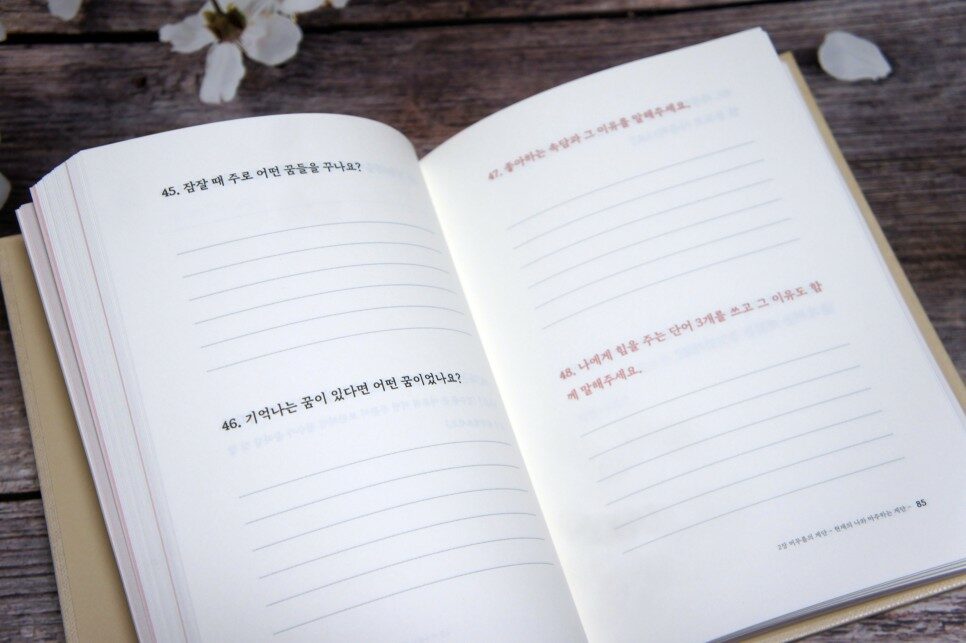 45. 잠잘 때 주로 어떤 꿈들을 꾸나요?
46. 기억나는 꿈이 있다면 어떤 꿈이었나요?
47. 좋아하는 속담과 그 이유를 말해주세요.
48. 나에게 힘을 주는 단어 3개를 쓰고 그 이유도 함
께 말해주세요.
2장 머무름의 계단 - 현재의 나와 마주하는 계단 - 85